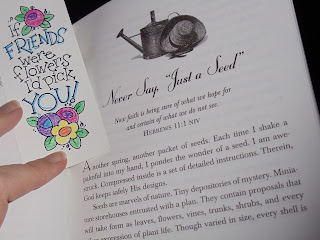 if
FRIENDS
were
flowers
I'd pick
YOU!
Never Say, "Just a Seed"
Now faith is being sure of what we hope for
and certain of what we do not see.
HEBREWS 11:1 NIV
Another spring, another packet of seeds. Each time I shake a
palmful into my hand, I ponder the wonder of a seed. I am awe-
struck. Compressed inside is a set of detailed instructions. Therein,
God keeps safely His designs.
Seeds are marvels of nature. Tiny depositories of mystery. Minia-
ture storehouses entrusted with a plan. They contain proposals that
will take form as leaves, flowers, vines, trunks, shrubs, and every
expression of plant life. Though varied in size, every shell is